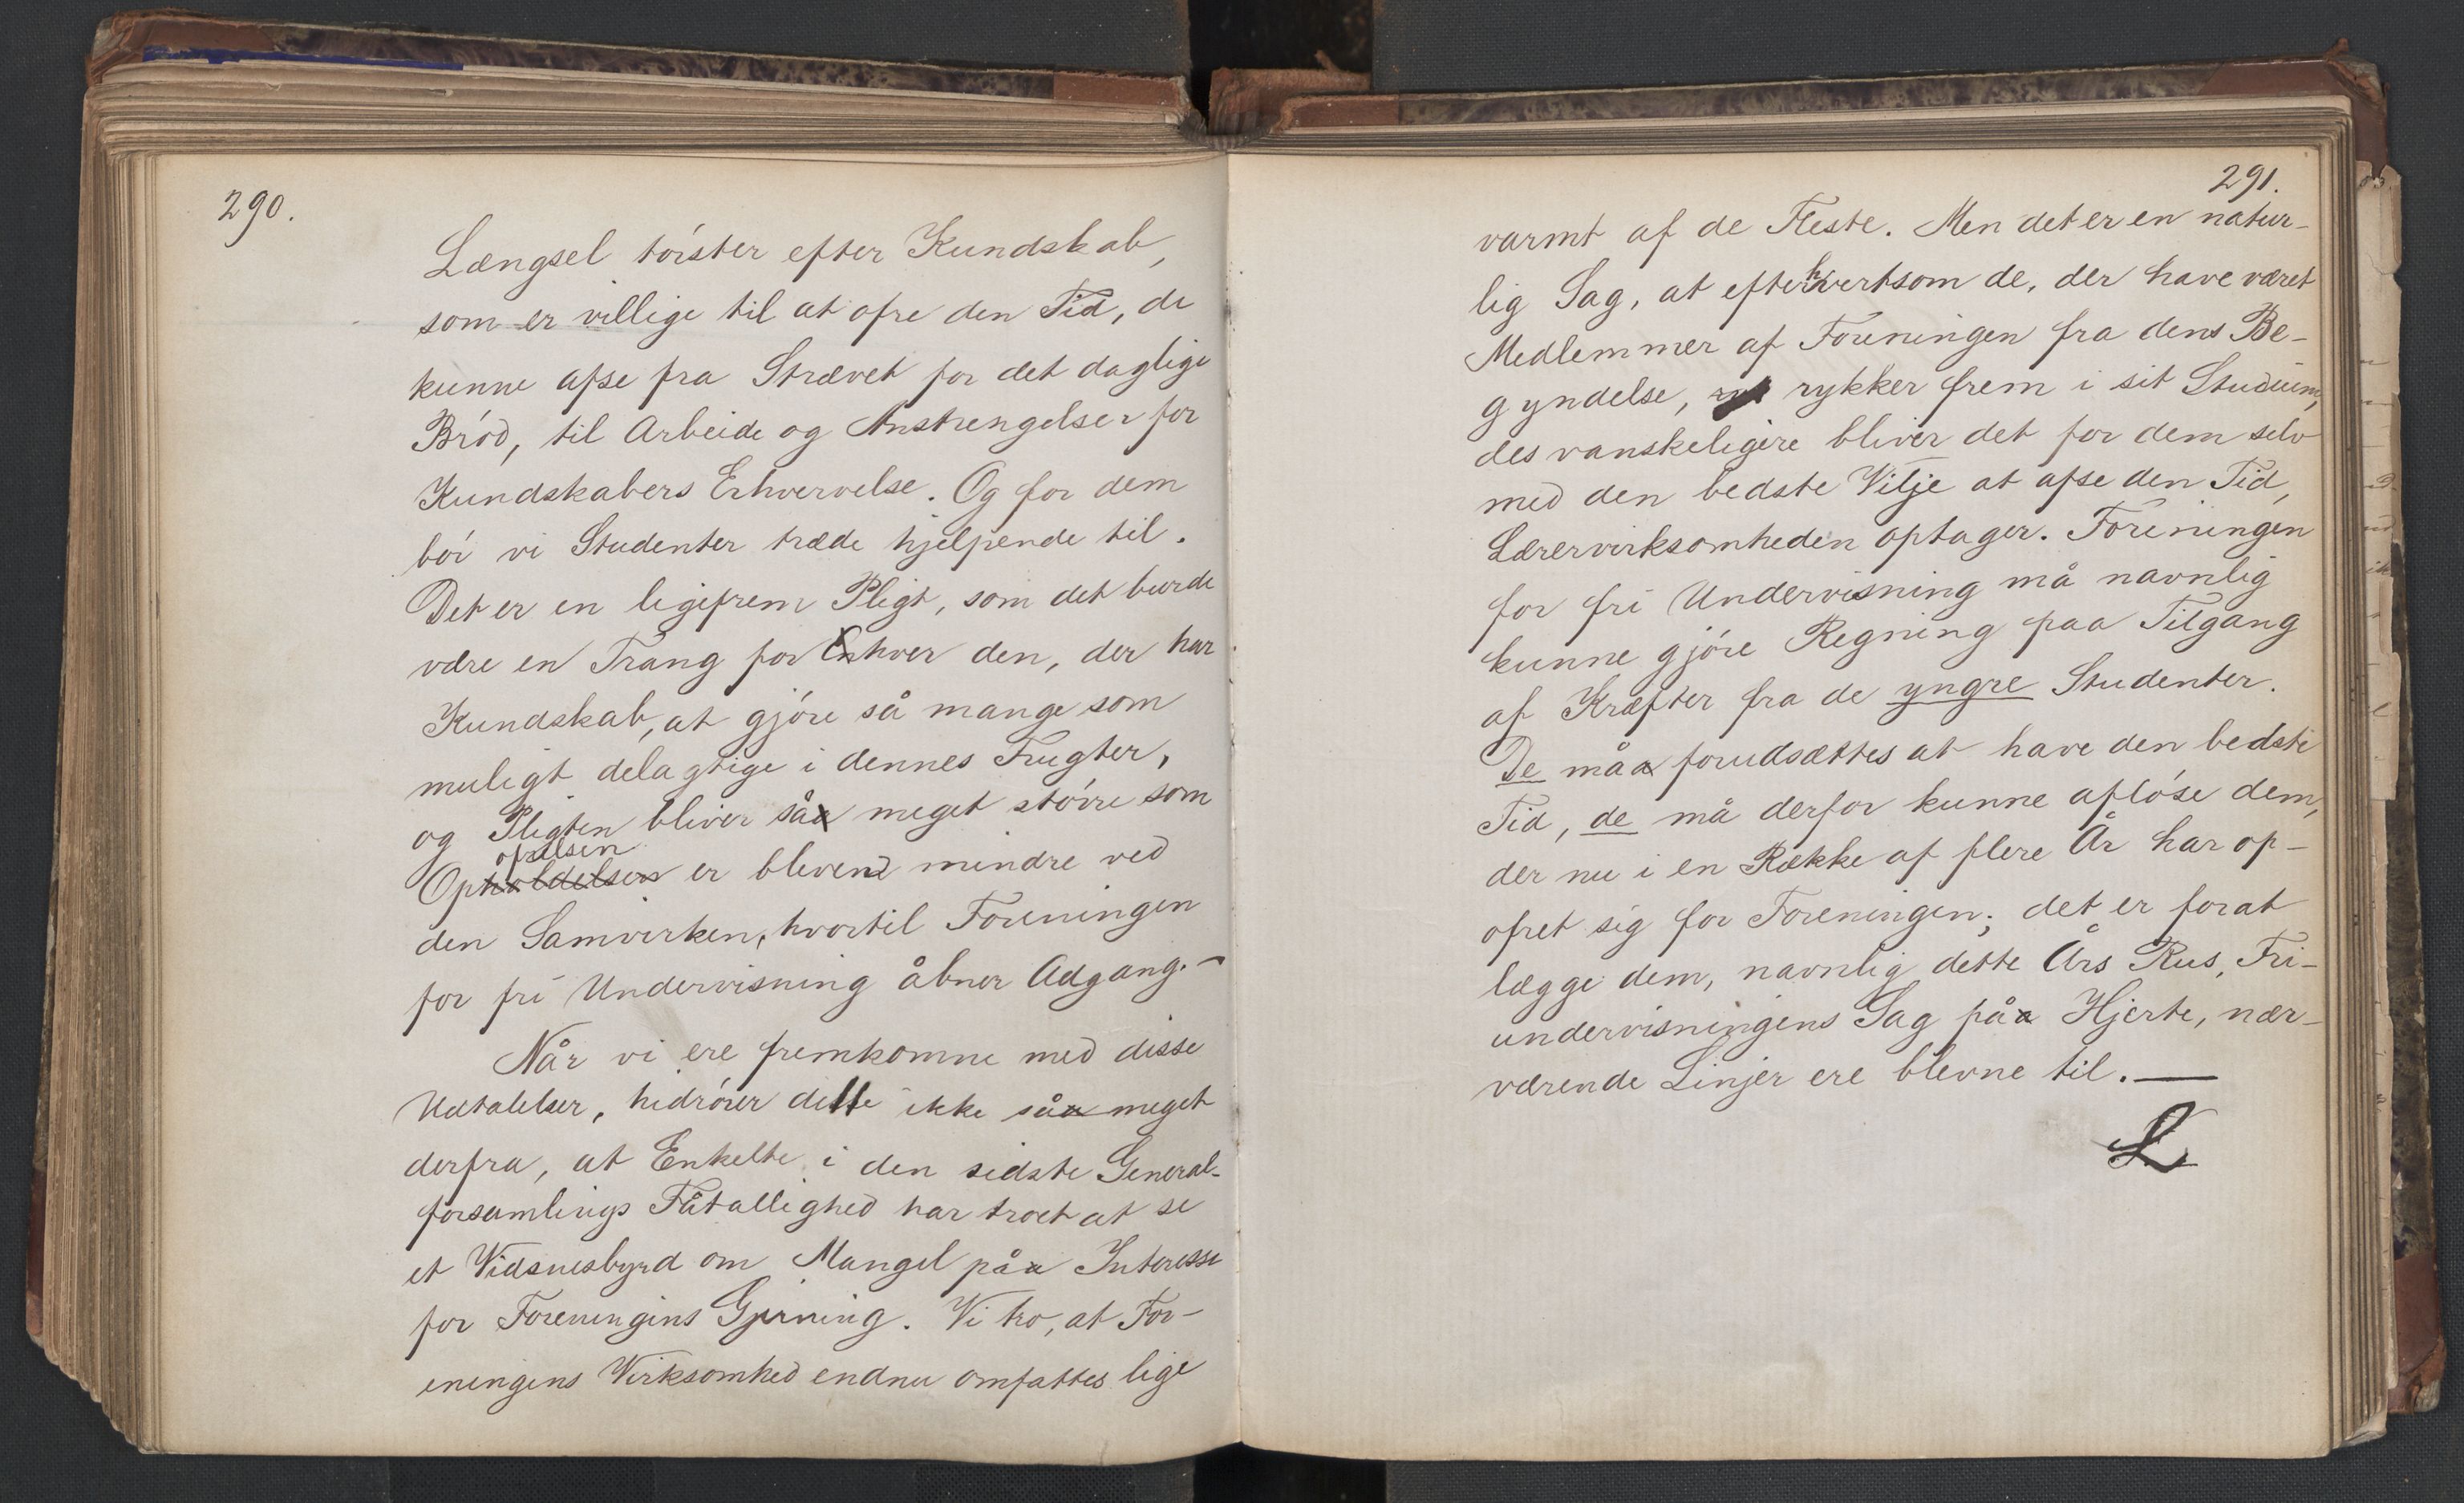 290.
Længsel tørster efter Kundskab,
som er villige til at ofre den Tid, de
kunne afse fra Strævet for det daglige
Brød, til Arbeide og Anstrengelser for
Kundskabers Erhvervelse. Og for dem
bør vi Studenter træde hjelpende til.
Det er en ligefrem Pligt, som det burde
være en Trang for Enhver den, der har
Kundskab, at gjøre så mange som
muligt delagtige i dennes Frugter,
og Pligten bliver såa meget større som
ofrelsen
Opholdelsen er bleven mindre ved
den Samvirken, hvortil Foreningen
for fri Undervisning åbner Adgang. –
Når vi ere fremkomne med disse
Udtalelser, hidrører dette ikke såa meget
derfra, at Enkelte i den sidste General-
forsamlings Fåtallighed har troet at se
et Vidsnesbyrd om Mangel påa Interesse
for Foreningens Gjerning. Vi tro, at For-
eningens Virksomhed endnu omfattes lige
291.
varmt af de Fleste. Men det er en natur-
lig Sag, at efterhvertsom de, der have været
Medlemmer af Foreningen fra dens Be-
gyndelse, rykker frem i sit Studium,
des vanskeligere bliver det for dem selv
med den bedste Vilje at afse den Tid,
Lærervirksomheden optager. Foreningen
for fri Undervisning må navnlig
kunne gjøre Regning paa Tilgang
af Kræfter fra de yngre Studenter.
De måa forudsættes at have den bedste
Tid, de må derfor kunne afløse dem,
der nu i en Række af flere År har op-
ofret sig for Foreningen; det er forat
lægge dem, navnlig dette Års Rus, Fri-
undervisningens Sag påa Hjerte, nær-
værende Linjer ere blevne til. —
L